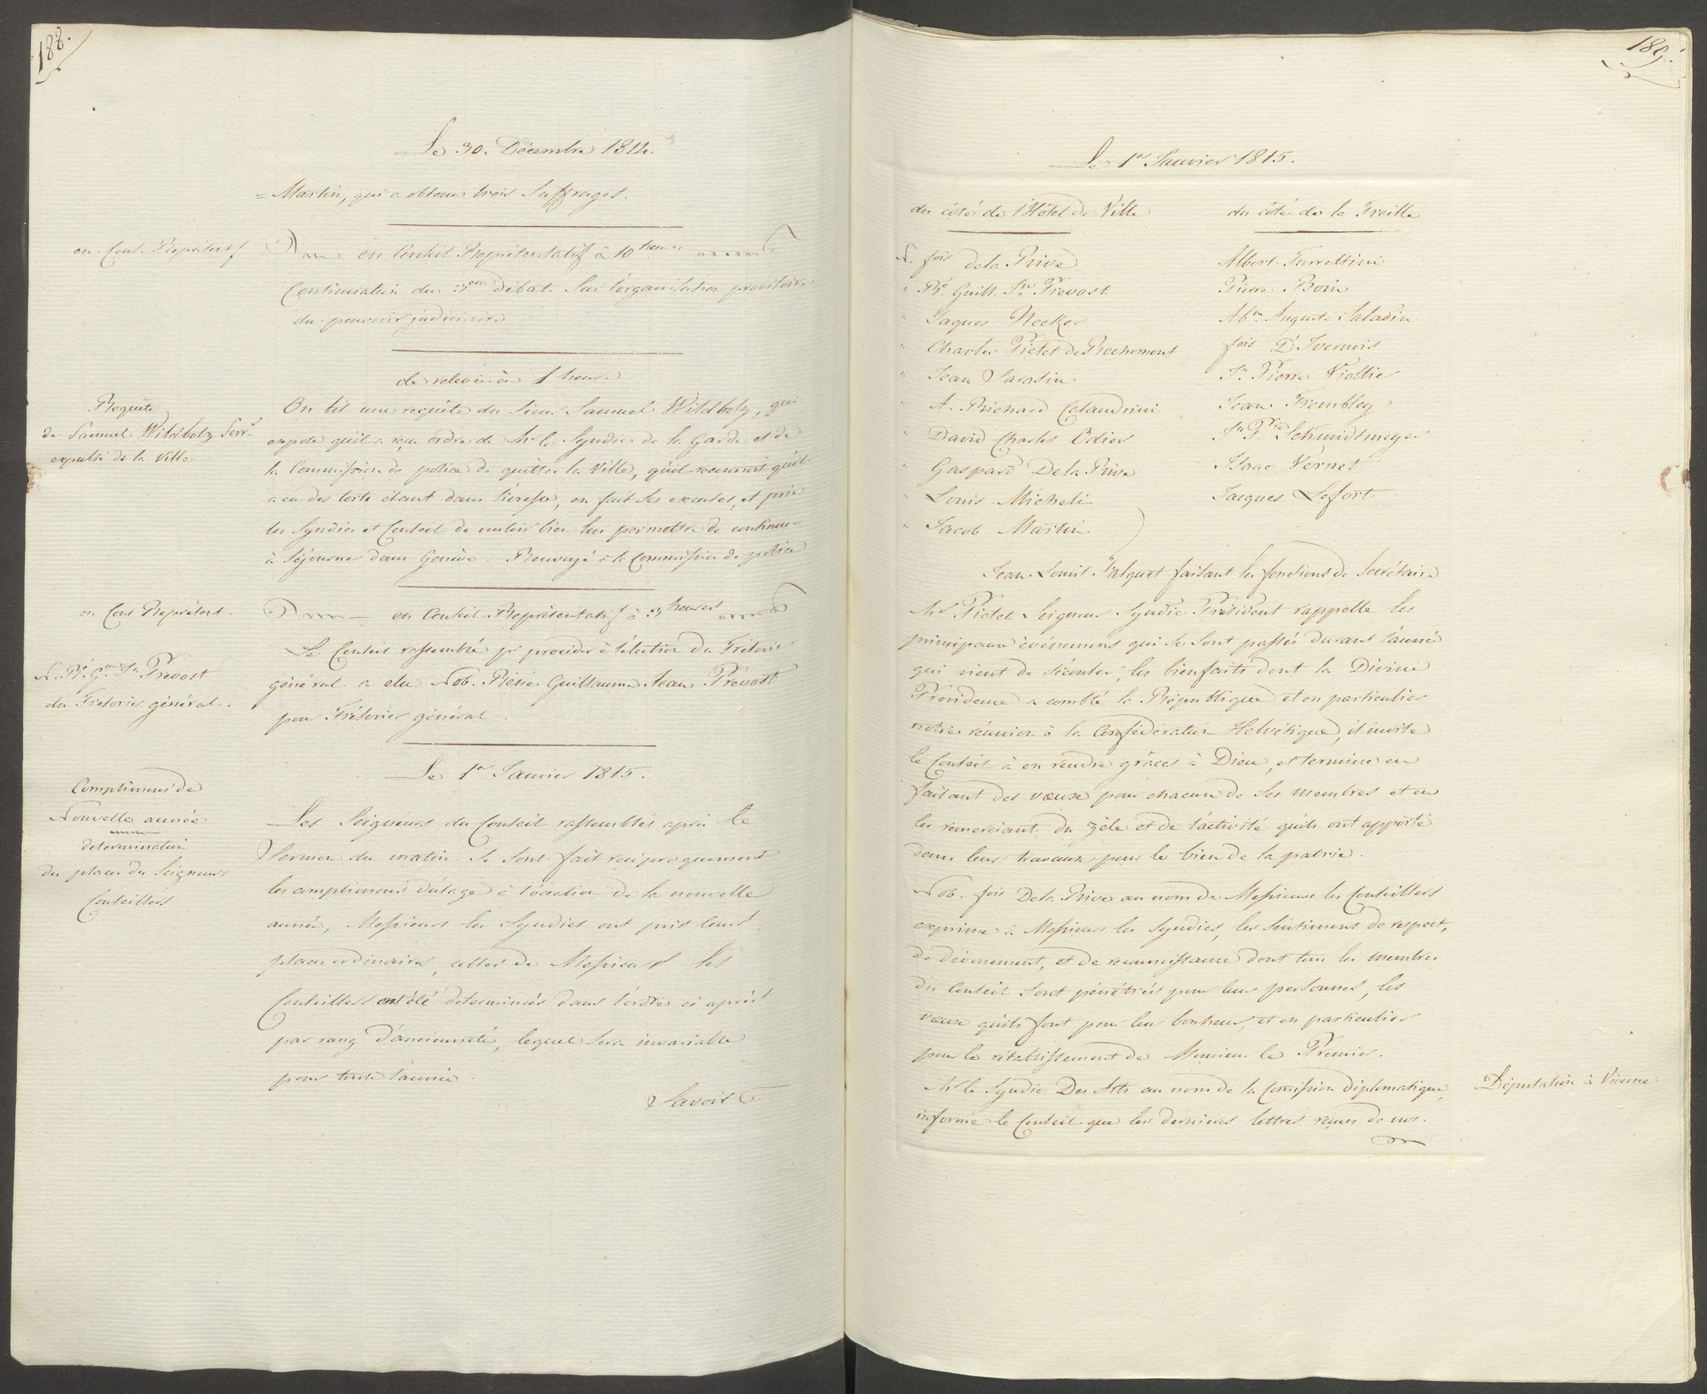 188.
Le 30. Décembre 1814.
= Martin, qui a obtenu trois Suffrages.
en Cons. Représent.f
en Conseil Représentatif à 10 heures
Continuation du 3me débat Sur l'organisation provisoire
du pouvoir judiciaire
de relevée à 1 heure
Requête
de Samuel Wildbolz Serr.
expulsé de la Ville
On lit une requête du Sieur Samuel Wildbolz, qui
expose qu'il a reçu ordre de Mr le Syndic de la Garde et de
la Commission de police de quitter la Ville, qu'il reconnoit qu'il
a eu des torts étant dans l'ivresse, en fait Ses excuses, et prie
les Syndics et Conseil de vouloir bien lui permettre de continuer
à Séjourner dans Genève. Renvoyé à la Commission de police
en Cons Représent.
en Conseil Représentatif à 3 heures
N. Pre Gme Jn Prevost
élu Trésorier général.
Le Conseil rassemblé pr procéder à l'élection du Trésorier
général a élu Nob. Pierre Guillaume Jean Prevost
pour Trésorier général.
Le 1er Janvier 1815.
Complimens de
Nouvelle année
détermination
des places des Seigneurs
Conseillers
Les Seigneurs du Conseil rassemblés après le
Sermon du matin Se Sont fait réciproquement
les complimens d'usage à l'occasion de la nouvelle
année, Messieurs les Syndics ont pris leurs
places ordinaires, celles de Messieurs les
Conseillers ont été déterminées dans l'ordre ci après
par rang d'ancienneté, lequel Sera invariable
pour toute l'année.
Savoir
189.
Le 1er Janvier 1815.
du côté de l'Hôtel de Ville
N. fois dela Rive
" Pre Guill. Jn Prevost
" Jaques Necker
" Charles Pictet de Rochemont
" Jean Sarasin
" A. Richard Calandrini
David Charles Odier
" Gaspard De la Rive
" Louis Micheli
" Jacob Martin
du côté de la Treille
Albert Turrettini
Pierre Boin
Abm Auguste Saladin
fois D'Ivernois
Jn Pierre Viollier
Jean Trembley
Jn Pre Schmidtmeyer
Isaac Vernet
Jacques Lefort
Jean Louis Falquet faisant les fonctions de Secrétaire
Mr Pictet Seigneur Syndic Président rappelle les
principaux événemens qui Se Sont passés durant l'année
qui vient de s'écouler, les bienfaits dont la Divine
Providence a comblé la République et en particulier
notre réunion à la Confédération Helvétique, il invite
le Conseil à en rendre grâces à Dieu, et termine en
faisant des vœux pour chacun de Ses membres et en
les remerciant du zèle et de l'activité qu'ils ont apporté
dans leurs travaux pour le bien de la patrie.
Nob. fois Dela Rive au nom de Messieurs les Conseillers
exprime à Messieurs les Syndics, les Sentimens de respect,
de dévouement, et de reconnoissance dont tous les membres
du Conseil Sont pénétrés pour leurs personnes, les
vœux qu'ils font pour leur bonheur, et en particulier
pour le rétablissement de Monsieur le Premier.
Députation à Vienne
Mr le Syndic Des Arts au nom de la Comission diplomatique,
informe le Conseil que les dernières lettres reçues de nos.